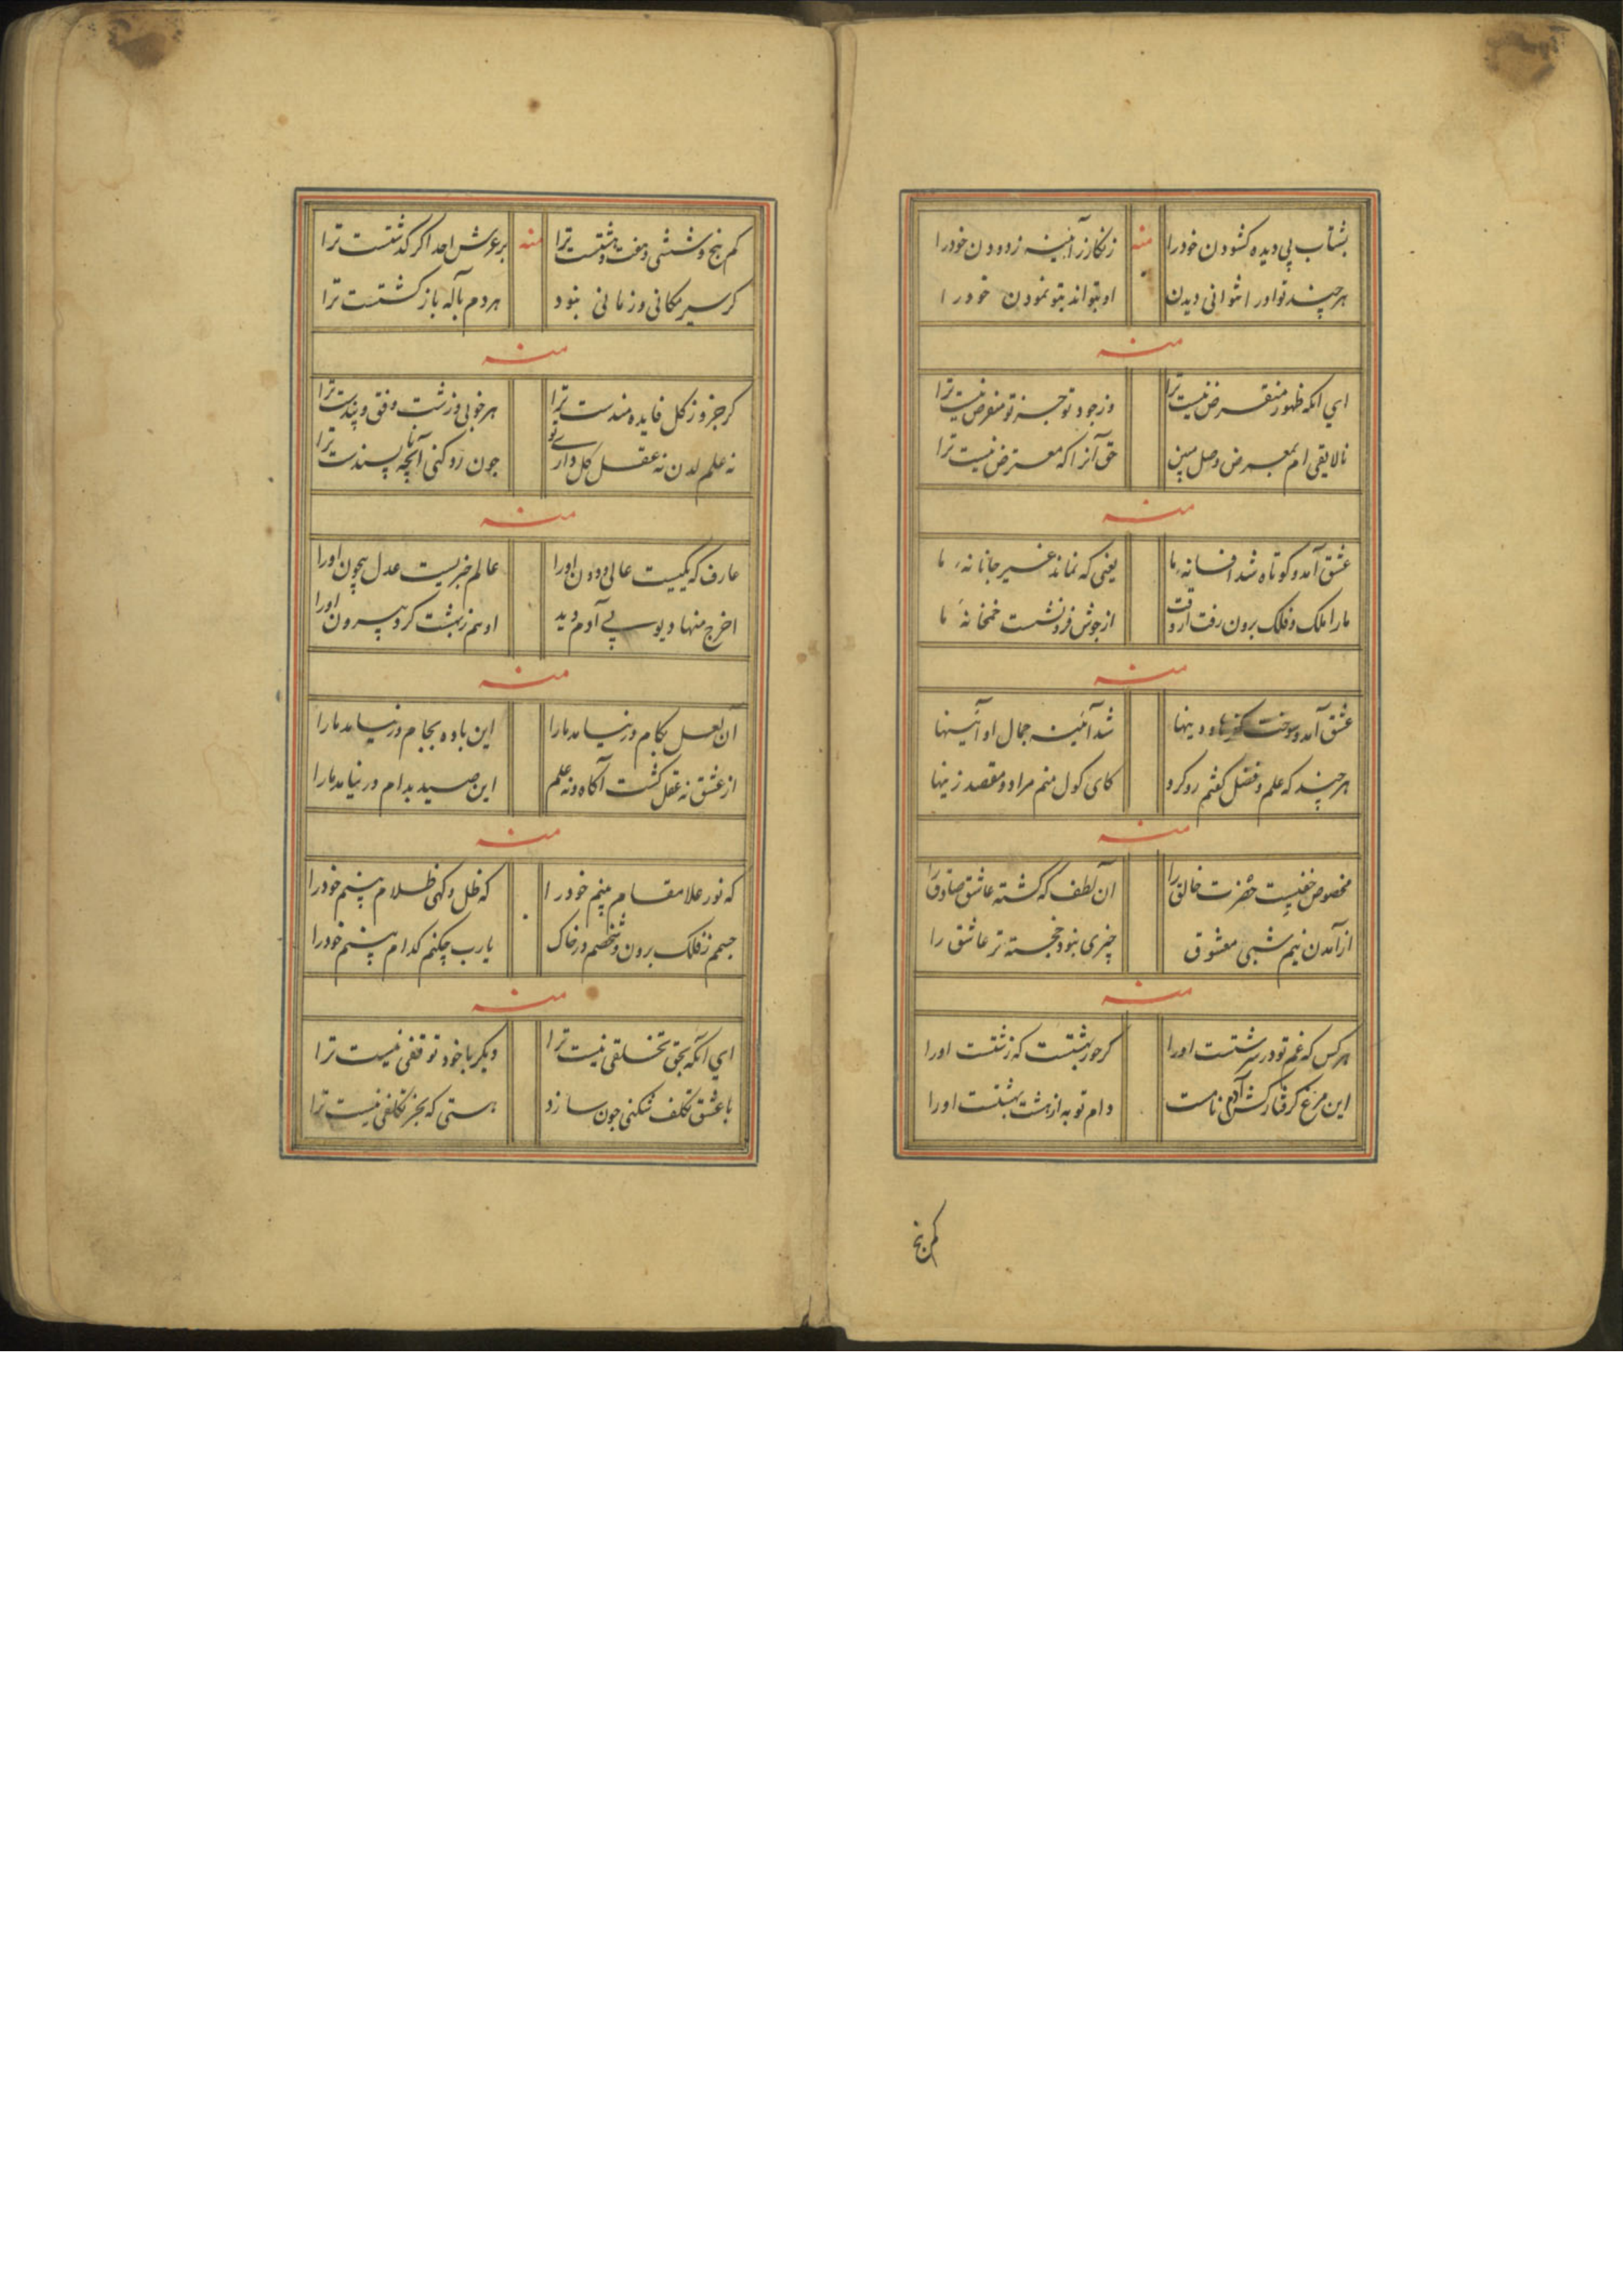 بشتاب پی دیده کشودن خودرا منه زنکار ز آینه زدودن خودرا
هرچند تو اورا نتوانی دیدن او بتواند بتو نمودن خودرا
منه
ای آنکه ظهور منقرض نیست ترا وز جود تو جز تو مفترض نیست ترا
نالایقی ام بمعرض وصل مبین حق آنرا که معترض نیست ترا
منه
عشق آمد و کوتاه شد افسانهٔ ما یعنی که نماند غیر جانانهٔ ما
مارا ملک و فلک برون رفت از جوش فرو نشست خمخانهٔ ما
منه
عشق آمد و سوخت و دینها شد آینه جمال او آیینها
هرچند که علم و فضل کفتم رو کرد کای کول منم مراد و مقصد زینها
منه
مخصوص خفیست حضرت خالق را آن لطف که کشته عاشق صادق را
از آمدن نیم شبی معشوق چیزی نبود خجسته تر عاشق را
منه
هر کس که غم تو در سرشتست اورا کر حور بهشتست که زشتست اورا
این مرغ کرفتار کش آدم نامست دام تو به از هشت بهشتست اورا
کم پنج
کم پنج و شش و هفت و هشتست ترا منه بر عرش احد اکر کذشتست ترا
کر سیر مکانی و زمانی نبود هردم باله بازکشتست ترا
منه
کر جزو ز کل فایده مندست ترا هر خوبی و زشت وفق و پندست ترا
نه علم لدن نه عقل کل داری تو چون رد کنی آنچه ناپسندست ترا
منه
عارف که یکیست عالی و دون اورا عالم خبریست عدل بیچون اورا
اخرج منها دیو پی آدم دید او هم ز بهشت کرد بیرون اورا
منه
آن لعل بکام در نیامد مارا این باده بجام در نیامد مارا
از عشق نه عقل کشت آکاه و نه علم این صید بدام در نیامد مارا
منه
که نور علا مقام بینم خودرا که ظل و کهی ظلام بینم خودرا
جسمم ز فلک برون و شخصم در خاک یارب چکنم کدام بینم خودرا
منه
ای آنکه بحق تخلقی نیست ترا دیکر با خود توقفی نیست ترا
با عشق تکلف نکنی چون سازد هستی که بجز تکلفی نیست ترا